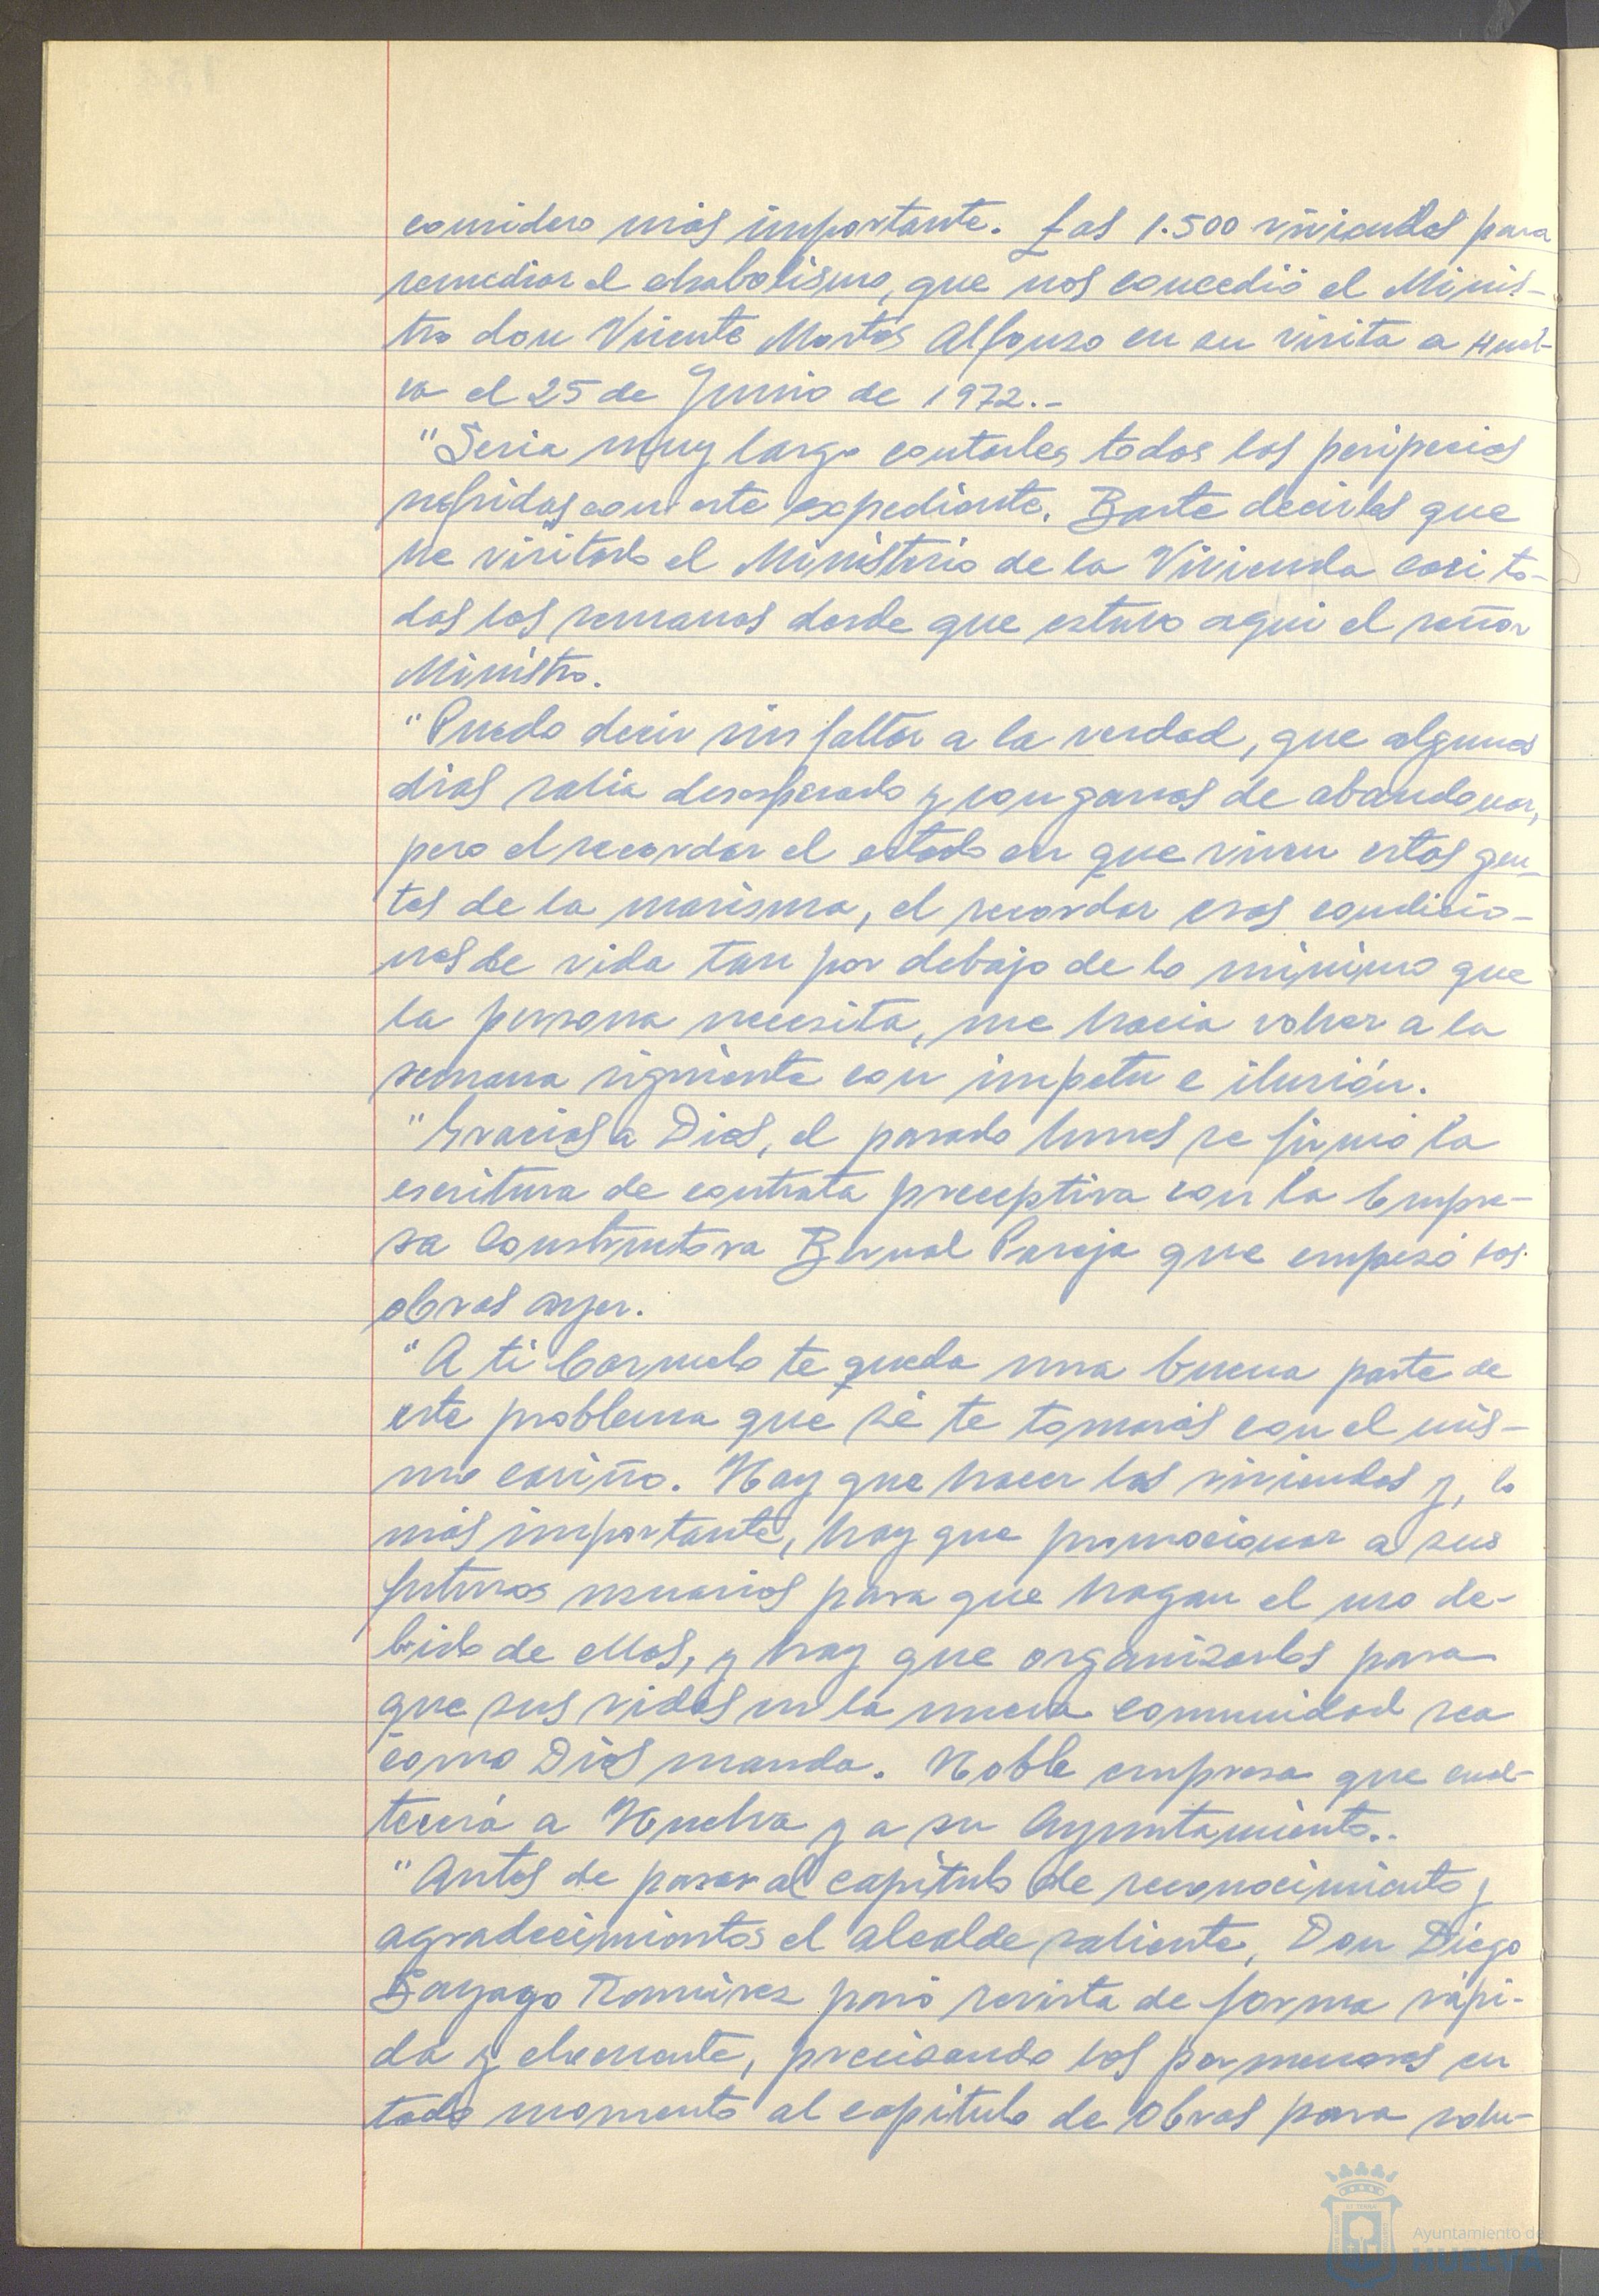 considero más importante. Las 1.500 viviendas para
remediar el chabolismo, que nos concedió el Minis-
tro don Vicente Mortes Alfonso en su visita a Huel-
va el 25 de Junio de 1972.-
"Seria muy largo contarles todas las peripecias
sufridas con este expediente. Baste decirles que
he visitado el Ministerio de la Vivienda casi to-
das las semanas desde que estuvo aqui el señor
Ministro.
"Puedo decir sin faltar a la verdad, que algunos
dias salia desesperado y con ganas de abandonar,
pero el recordar el estado en que viven estas gen-
tes de la marisma, el recordar esas condicio-
nes de vida tan por debajo de lo minimo que
la persona necesita, me hacia volver a la
semana siguiente con impetu e ilusión.
"Gracias a Dios, el pasado lunes se firmó la
escritura de contrata preceptiva con la Empre-
sa Constructora Bernal Pareja que empezó las
obras ayer.
"A ti Carmelo te queda una buena parte de
este problema que sé te tomarás con el mis-
mo cariño. Hay que hacer las viviendas y, lo
más importante, hay que promocionar a sus
futuros usuarios para que hagan el uso de-
bido de ellas, y hay que organizarlos para
que sus vidas en la nueva comunidad sea
como Dios manda. Noble empresa que enal-
tecerá a Huelva y a su Ayuntamiento..
"Antes de pasar al capitulo de reconocimiento y
agradecimientos el alcalde saliente, Don Diego
Sayago Ramirez pasó revista de forma rápi-
da y elocuente, precisando los pormenores en
todo momento al capitulo de Obras para solu-
Ayuntamiento de
HUELVA